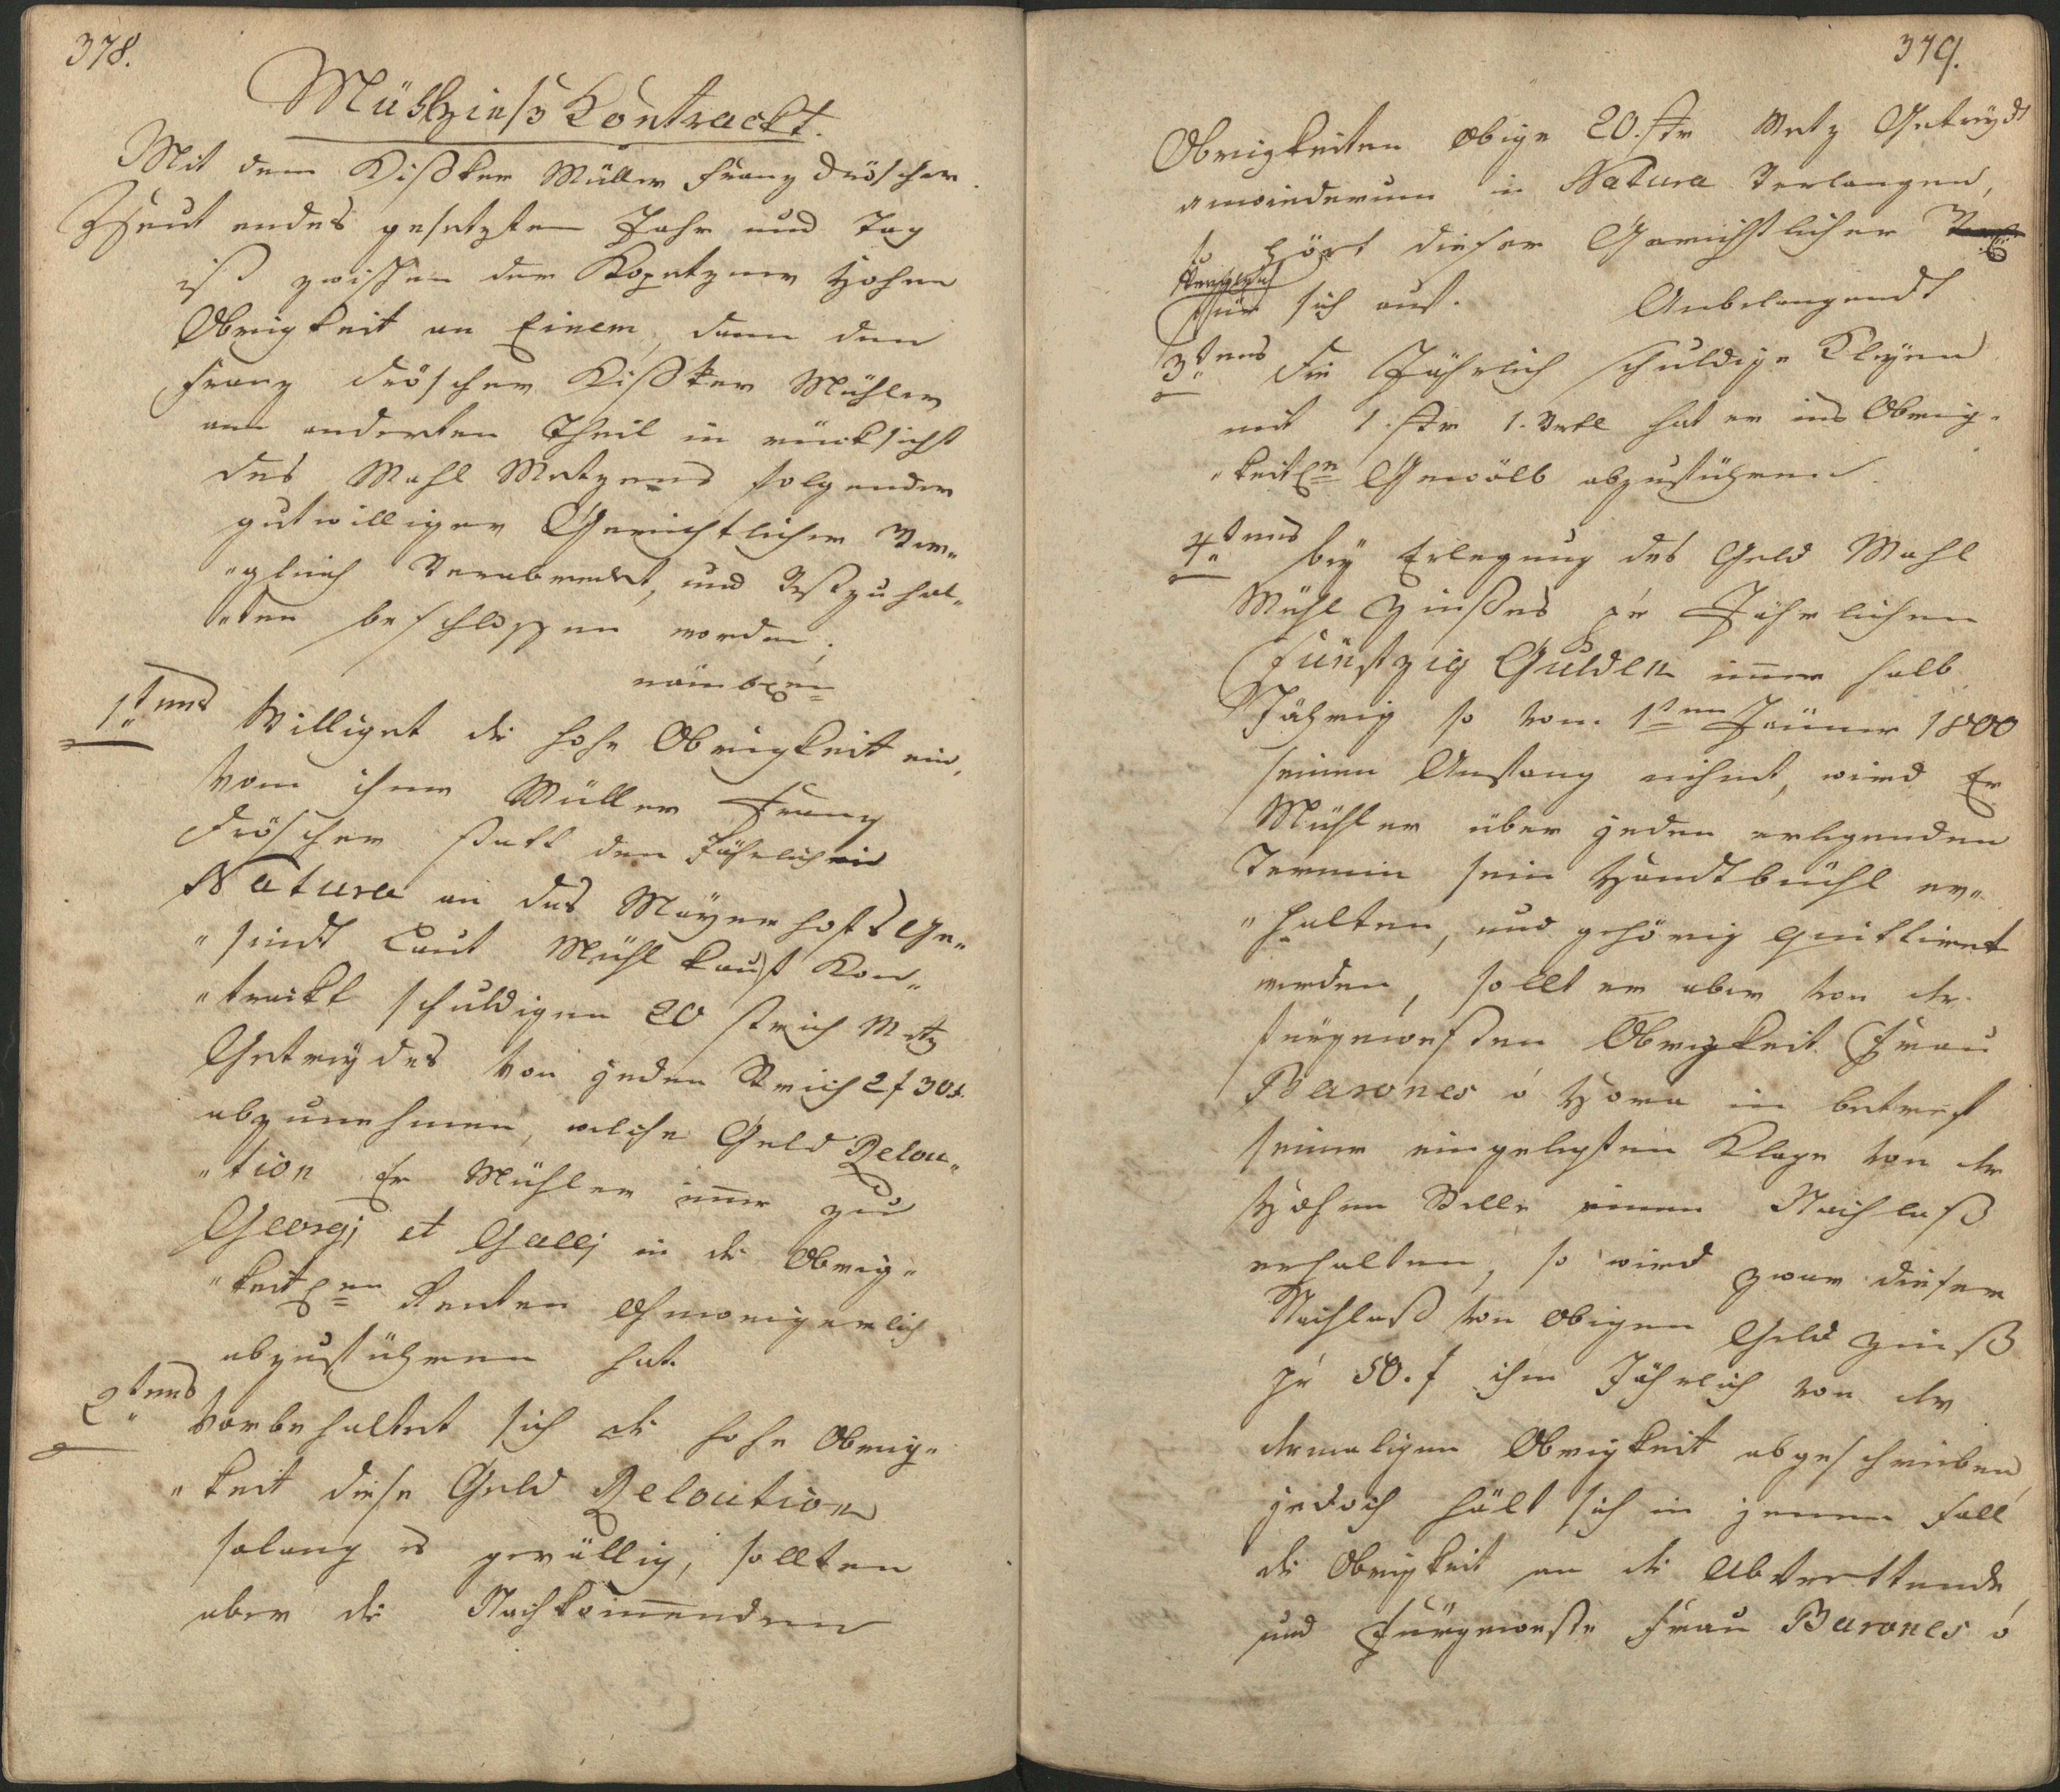 378.
Mühlzinß Kontrackt.
Mit dem Dißker Müller Franz Dröscher.
Heut endes gesetzten Jahr und Tag
ist zwischen der Kopetzner Hohen
Obrigkeit an Einem, dann den
Franz Dröscher Dißker Mühler
am anderten Theil in rücksicht
des Mahl Metzens folgender
gutwilliger Gerichtlicher Ver„
„gleich Verabredet, und Vestzuhal„
„ten beschlossen worden;
1tens Williget die hohe Obrigkeit ein,
vom ihme Müller Franz
Dröscher statt den Jährlich in
Natura an das Mayerhofs Ge„
„sindt Laut Mühl Kauf Kon„
„trackt schuldigen 20 strich Metz
Getreydes von jeden Strich 2f 30x.
abzunehmen, welche Geld Relou„
„tion Er Mühler immer zu
Georgj et Gallj in die Obrig„
„keitlen Renten ohnweigerlich
abzuführen hat.
2tens Vorbehaltet sich die hohe Obrig„
„keit diese Geld Reloution
solang es gevällig, sollten
aber die Nachkommenden
379.
Obrigkeiten obige 20. str Metz Getreydt
anwiederum in Natura Verlangen,
so hört dieser Gerichtlicher
Vergleich
für sich auf. Anbelangendt
3tens die Jährlich schuldige Kleyen
mit 1. str 1. Vrtl hat er ins Obrig„
„keitlen Gewölb abzuführen.
4tens bey Erlegung des Geld Mahl
Mühl Zinßes pr Jährlichen
Fünfzig Gulden immer halb
Jährig so vom 1ten Jänner 1800
seinen Anfang nihmt, wird Er
Mühler über jeden erlegenden
Termin sein Handtbüchl er„
„halten, und gehörig quittiret
werden, sollt er aber von der
fürgewesten Obrigkeit Frau
Barones v Hora in betref
seiner eingelegten Klage von der
Hohen Stelle einen Nachlaß
erhalten, so wird zwar dieser
Nachlaß von obigen Geld Zinß
pr 50. f ihm Jährlich von der
dermaligen Obrigkeit abgeschrieben
jedoch hält sich in jenem Fall
die Obrigkeit an die Abtrettende,
und Fürgeweste Frau Barones v